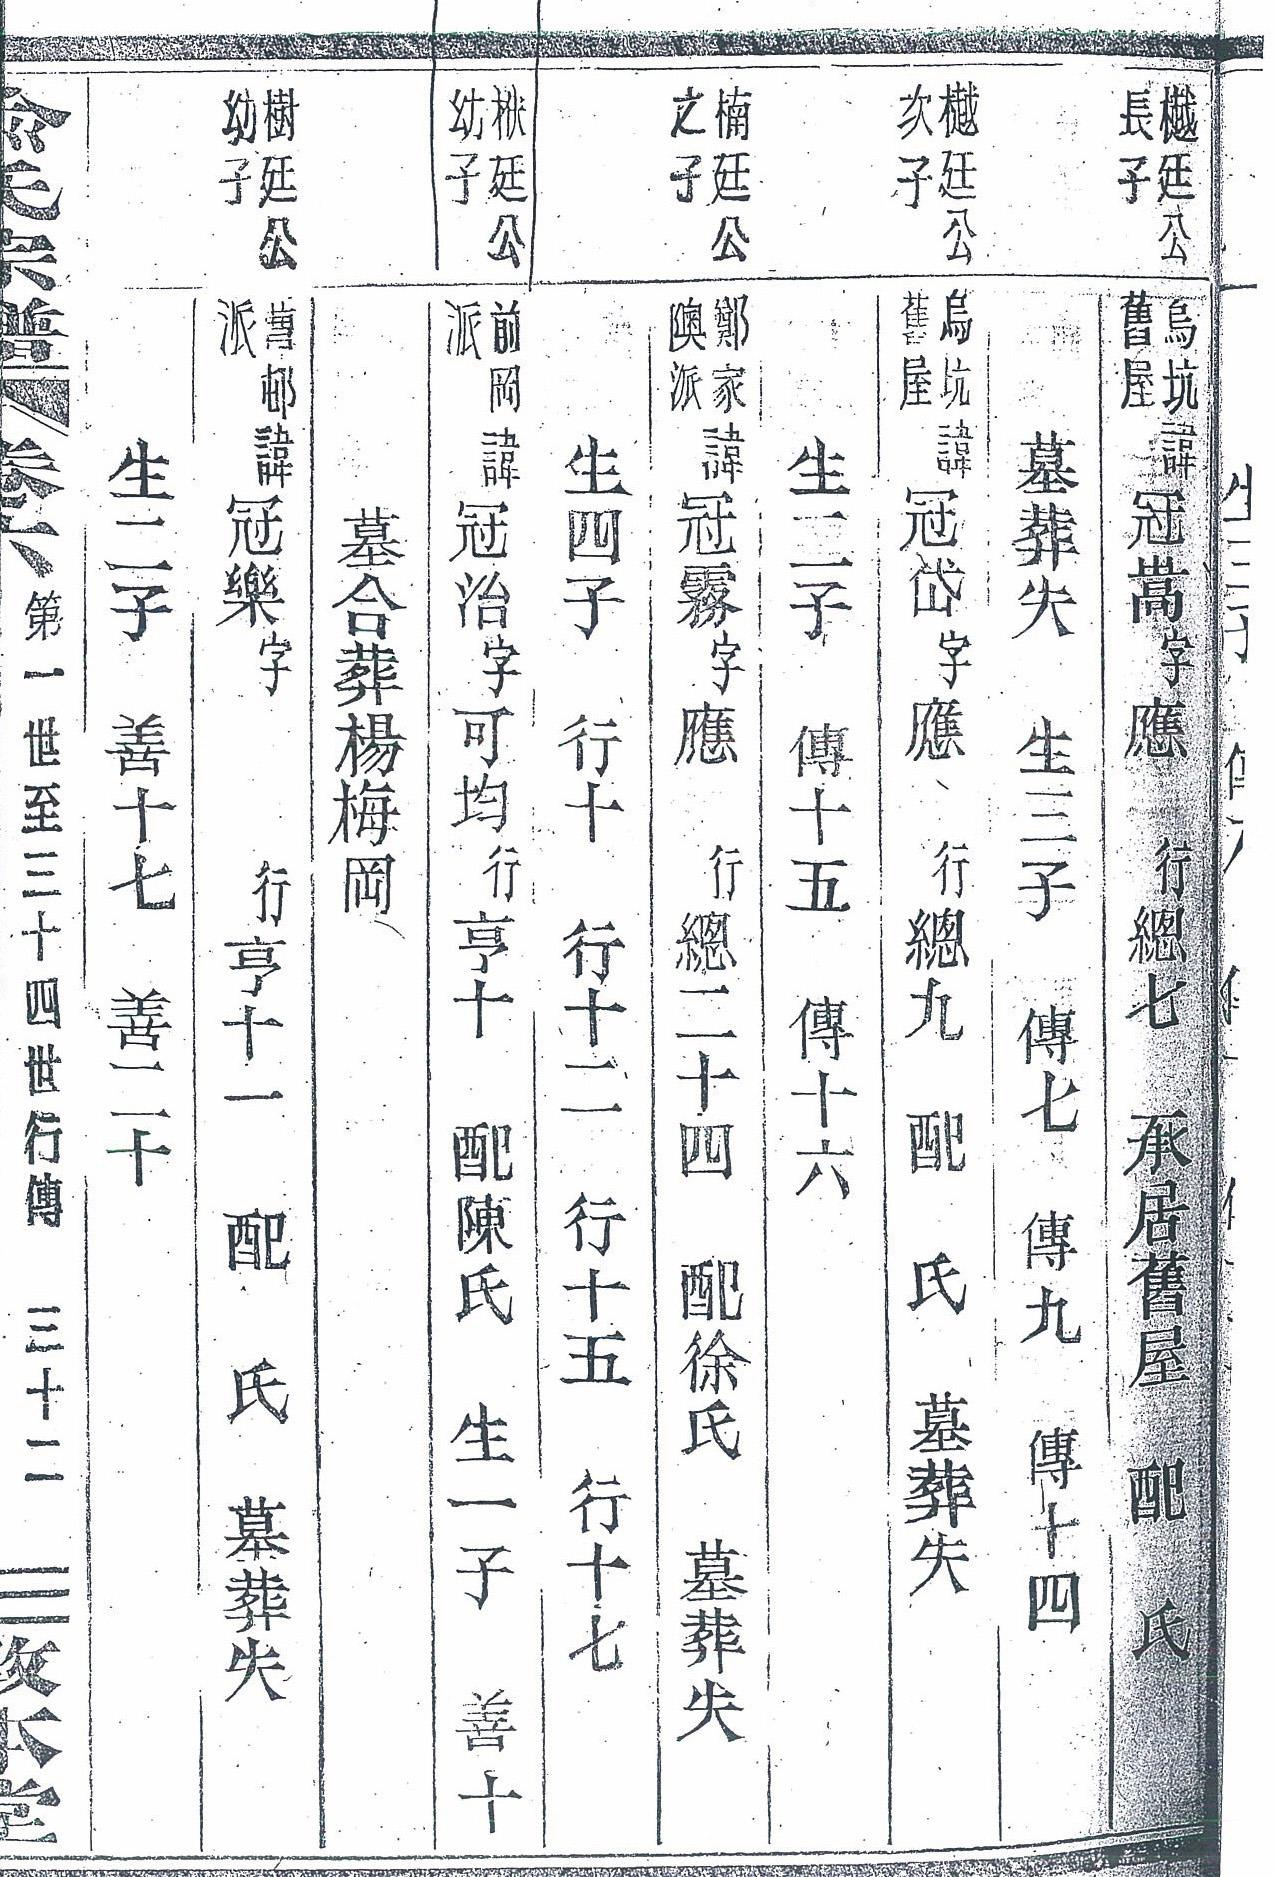 樾廷公
長子
烏坑
舊屋
諱冠嵩字應 行總七 承居舊屋 配 氏
墓葬失 生三子 傳七 傳九 傳十四
樾廷公
次子
烏坑
舊屋
諱冠岱字應 行總九 配 氏 墓葬失
生二子 傳十五 傳十六
楠廷公
之子
鄭家
陳派
諱冠霧字應 行總二十四 配徐氏 墓葬失
生四子 行十 行十二 行十五 行十七
廷公
幼子
前岡
派
諱冠治字可均行亨十 配陳氏 生一子 善十
墓合葬楊梅岡
樹廷公
幼子
邨
派
諱冠樂字 行亨十一 配 氏 墓葬失
生二子 善十七 善二十
氏宗譜 卷六 第一世至三十四世行傳 三十二 敦本堂